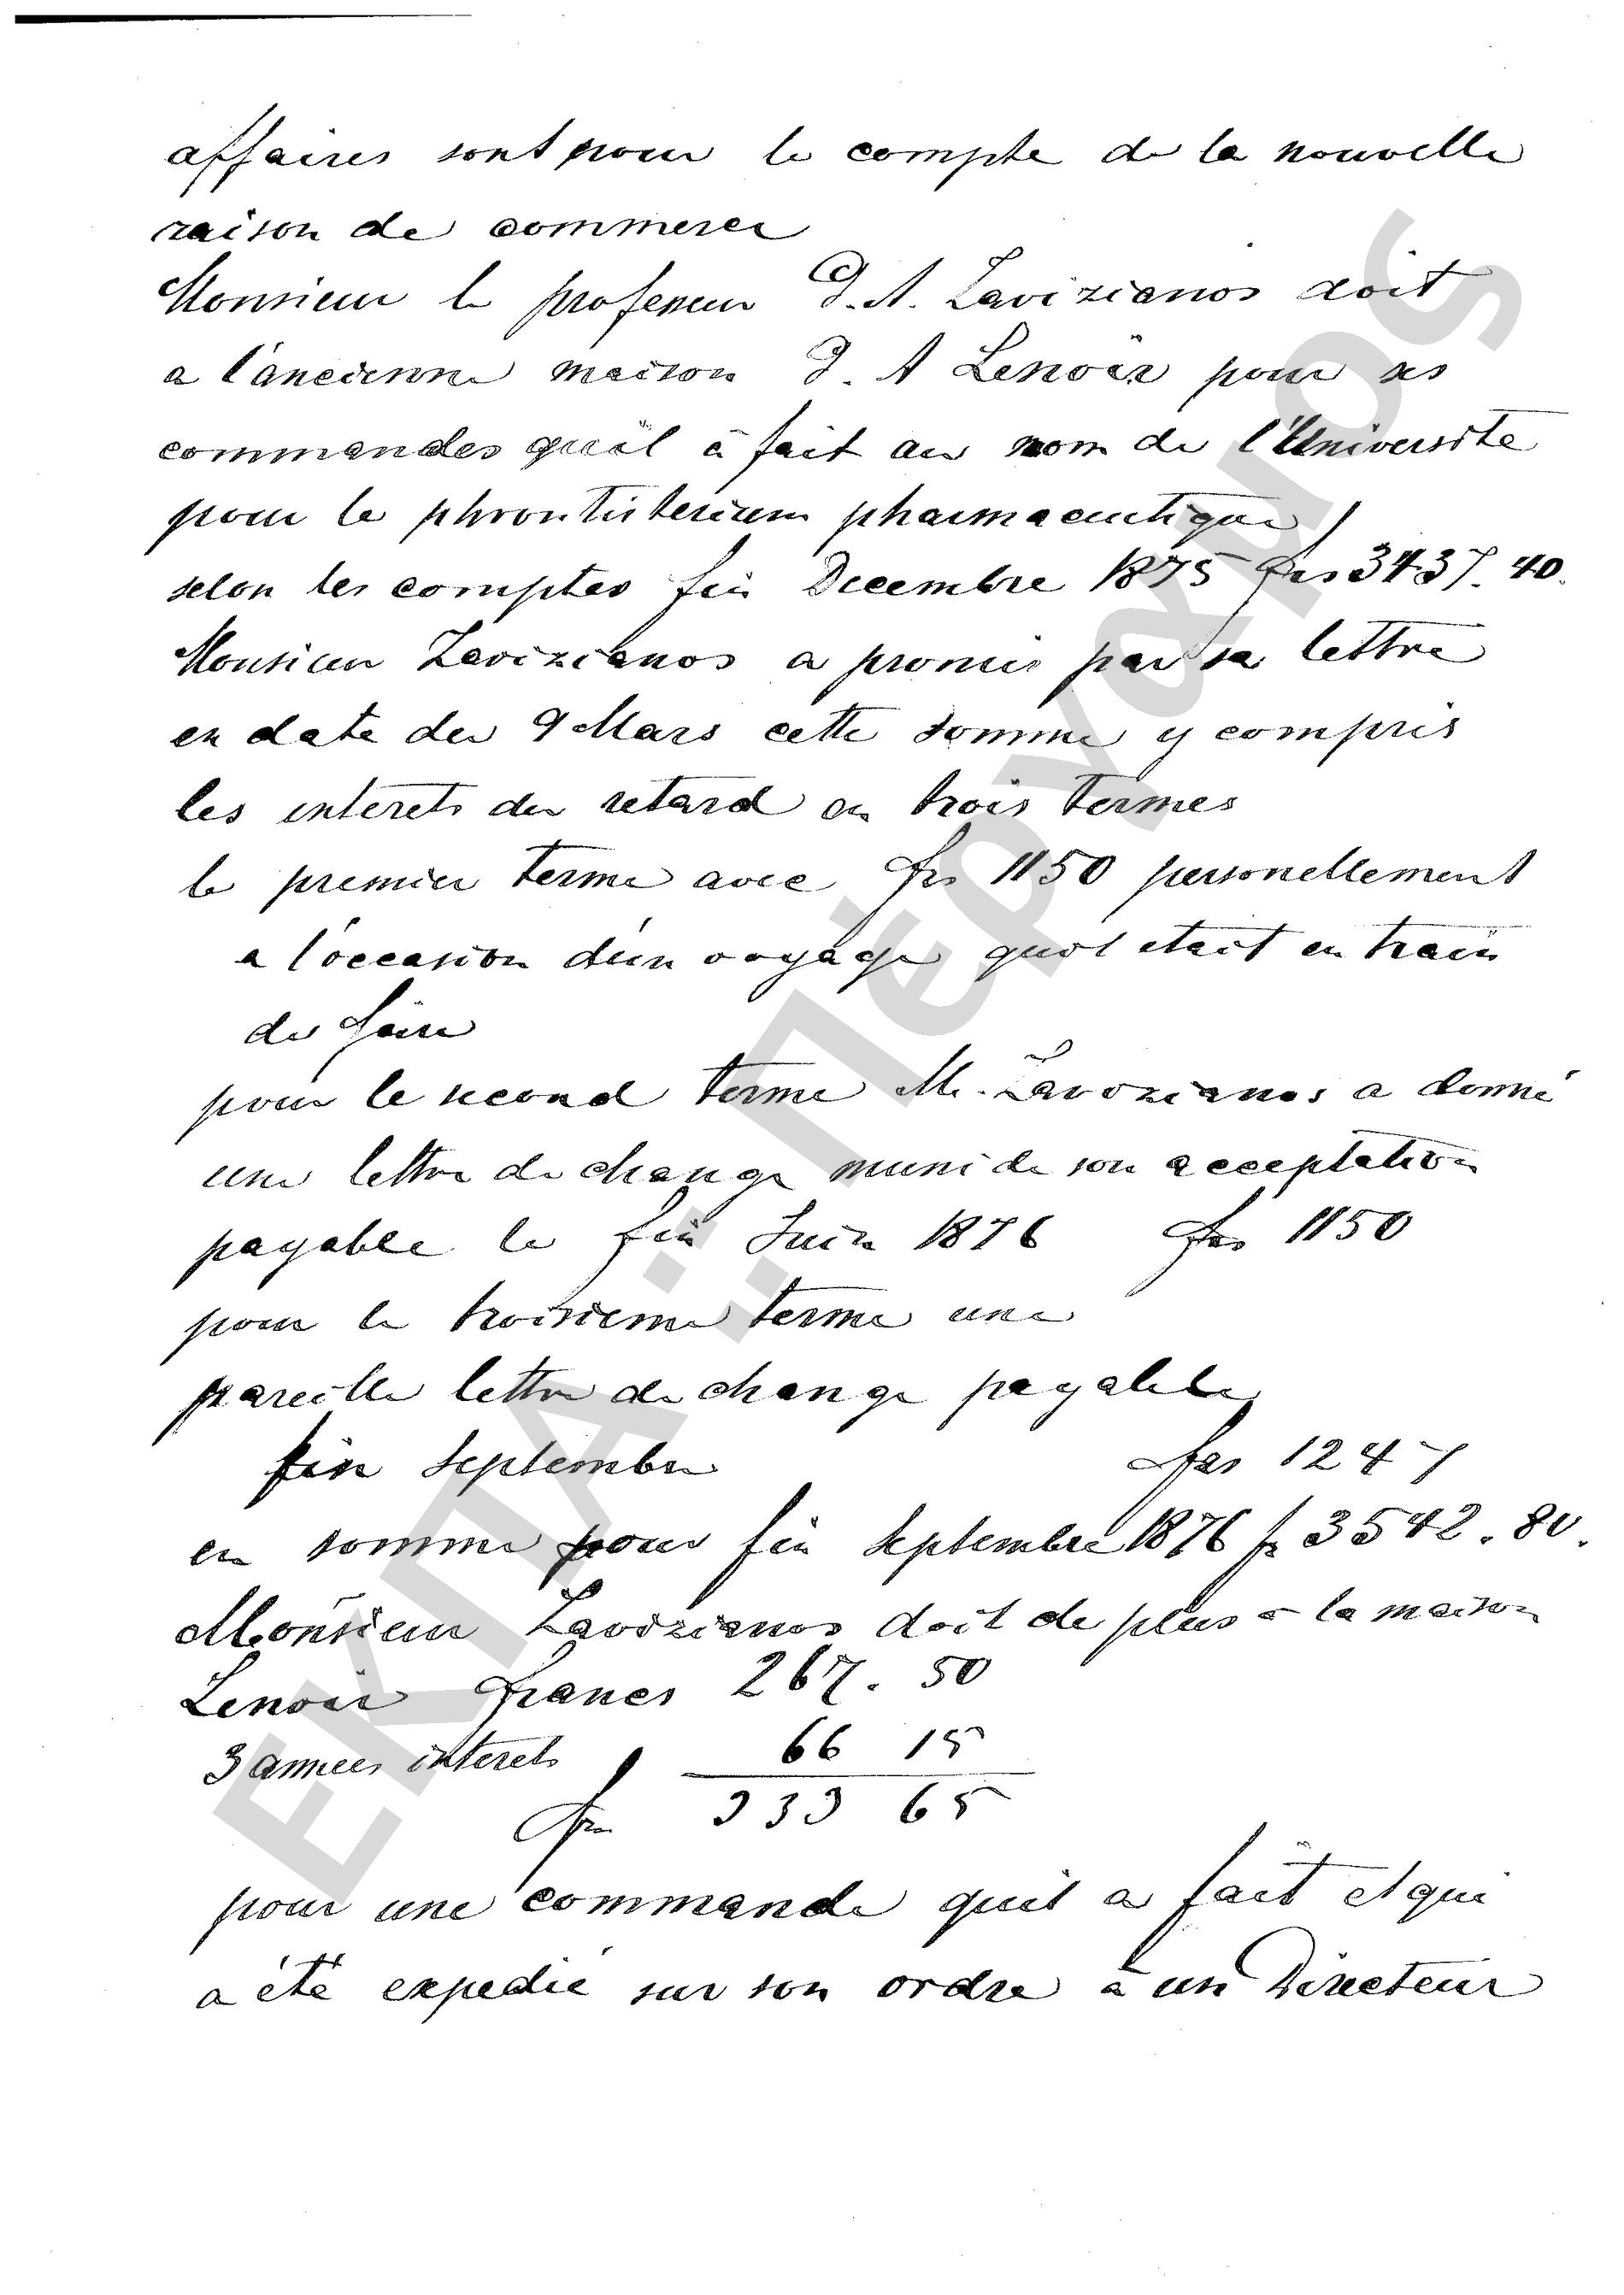 affaires sont pour le compte de la nouvelle
raison de commerce
Monsieur le professeur J. A. Zavizianos doit
a l'ancienne maison J. A Lenoir pour ses
commandes qu'il à fait au nom de l'Université
pour le phrontisterium pharmaceutique
selon les comptes fin Decembre 1875 frs 3437. 40.
Monsieur Zavizianos a promis par sa lettre
en date du 9 Mars cette somme y compris
les interets du retard en trois termes
le premier terme avec frs 1150 personellement
a l'occasion d'un voyage qu'il etait en train
de faire
pour le second terme M. Zavizianos a donné
une lettre de change muni de son acceptation
payable le fin Juin 1876 frs 1150
pour le troisieme terme une
pareille lettre de change payable
fin septembre frs 1247
en somme pour fin septembre 1876 fr 3542. 80.
Monsieur Zavizianos doit de plus a la maison
Lenoir francs 267. 50
3 annees interets 66 15
fr 333 65
pour une commande qu'il a fait et qui
a été expedié sur son ordre a un Directeur
ΕΚΠΑ : Πέργαμος